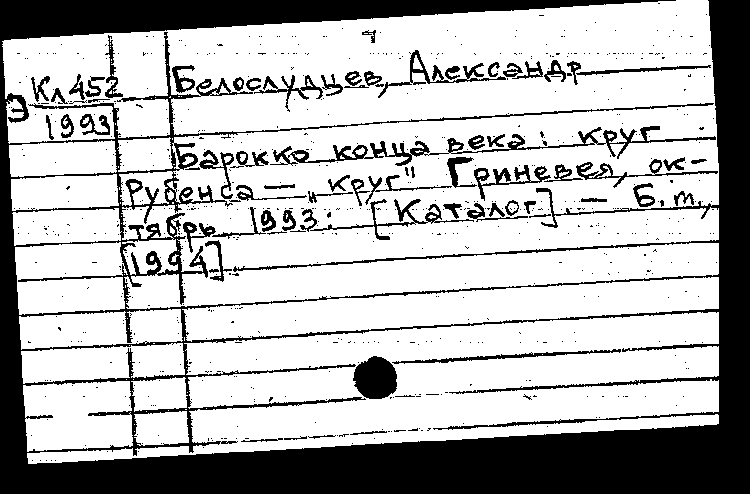 Кл 452 Белослудцев, Александр
Э
1993
Барокко конца века: круг
Рубенса — „круг" Гриневея, ок-
тябрь 1993: [Каталог]. — Б.м.,
[1994]